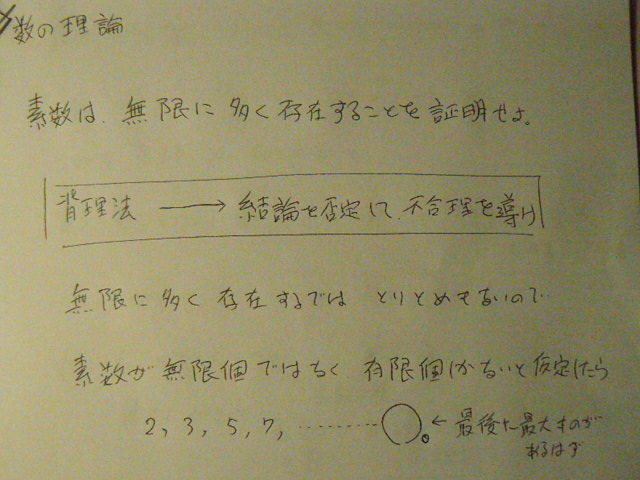 数の理論
素数は、無限に多く存在することを証明せよ。
背理法 → 結論を否定して、不合理を導け
無限に多く存在するでは とりとめもないので…
素数が無限個ではなく 有限個しかないと仮定したら
2, 3, 5, 7, ………○。← 最後に最大ものが
あるはず